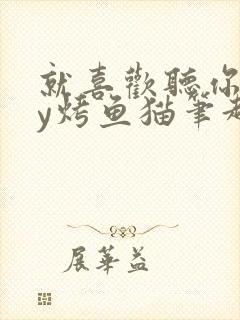 就喜歡聽你
y烤鱼猫筆趣
展華益